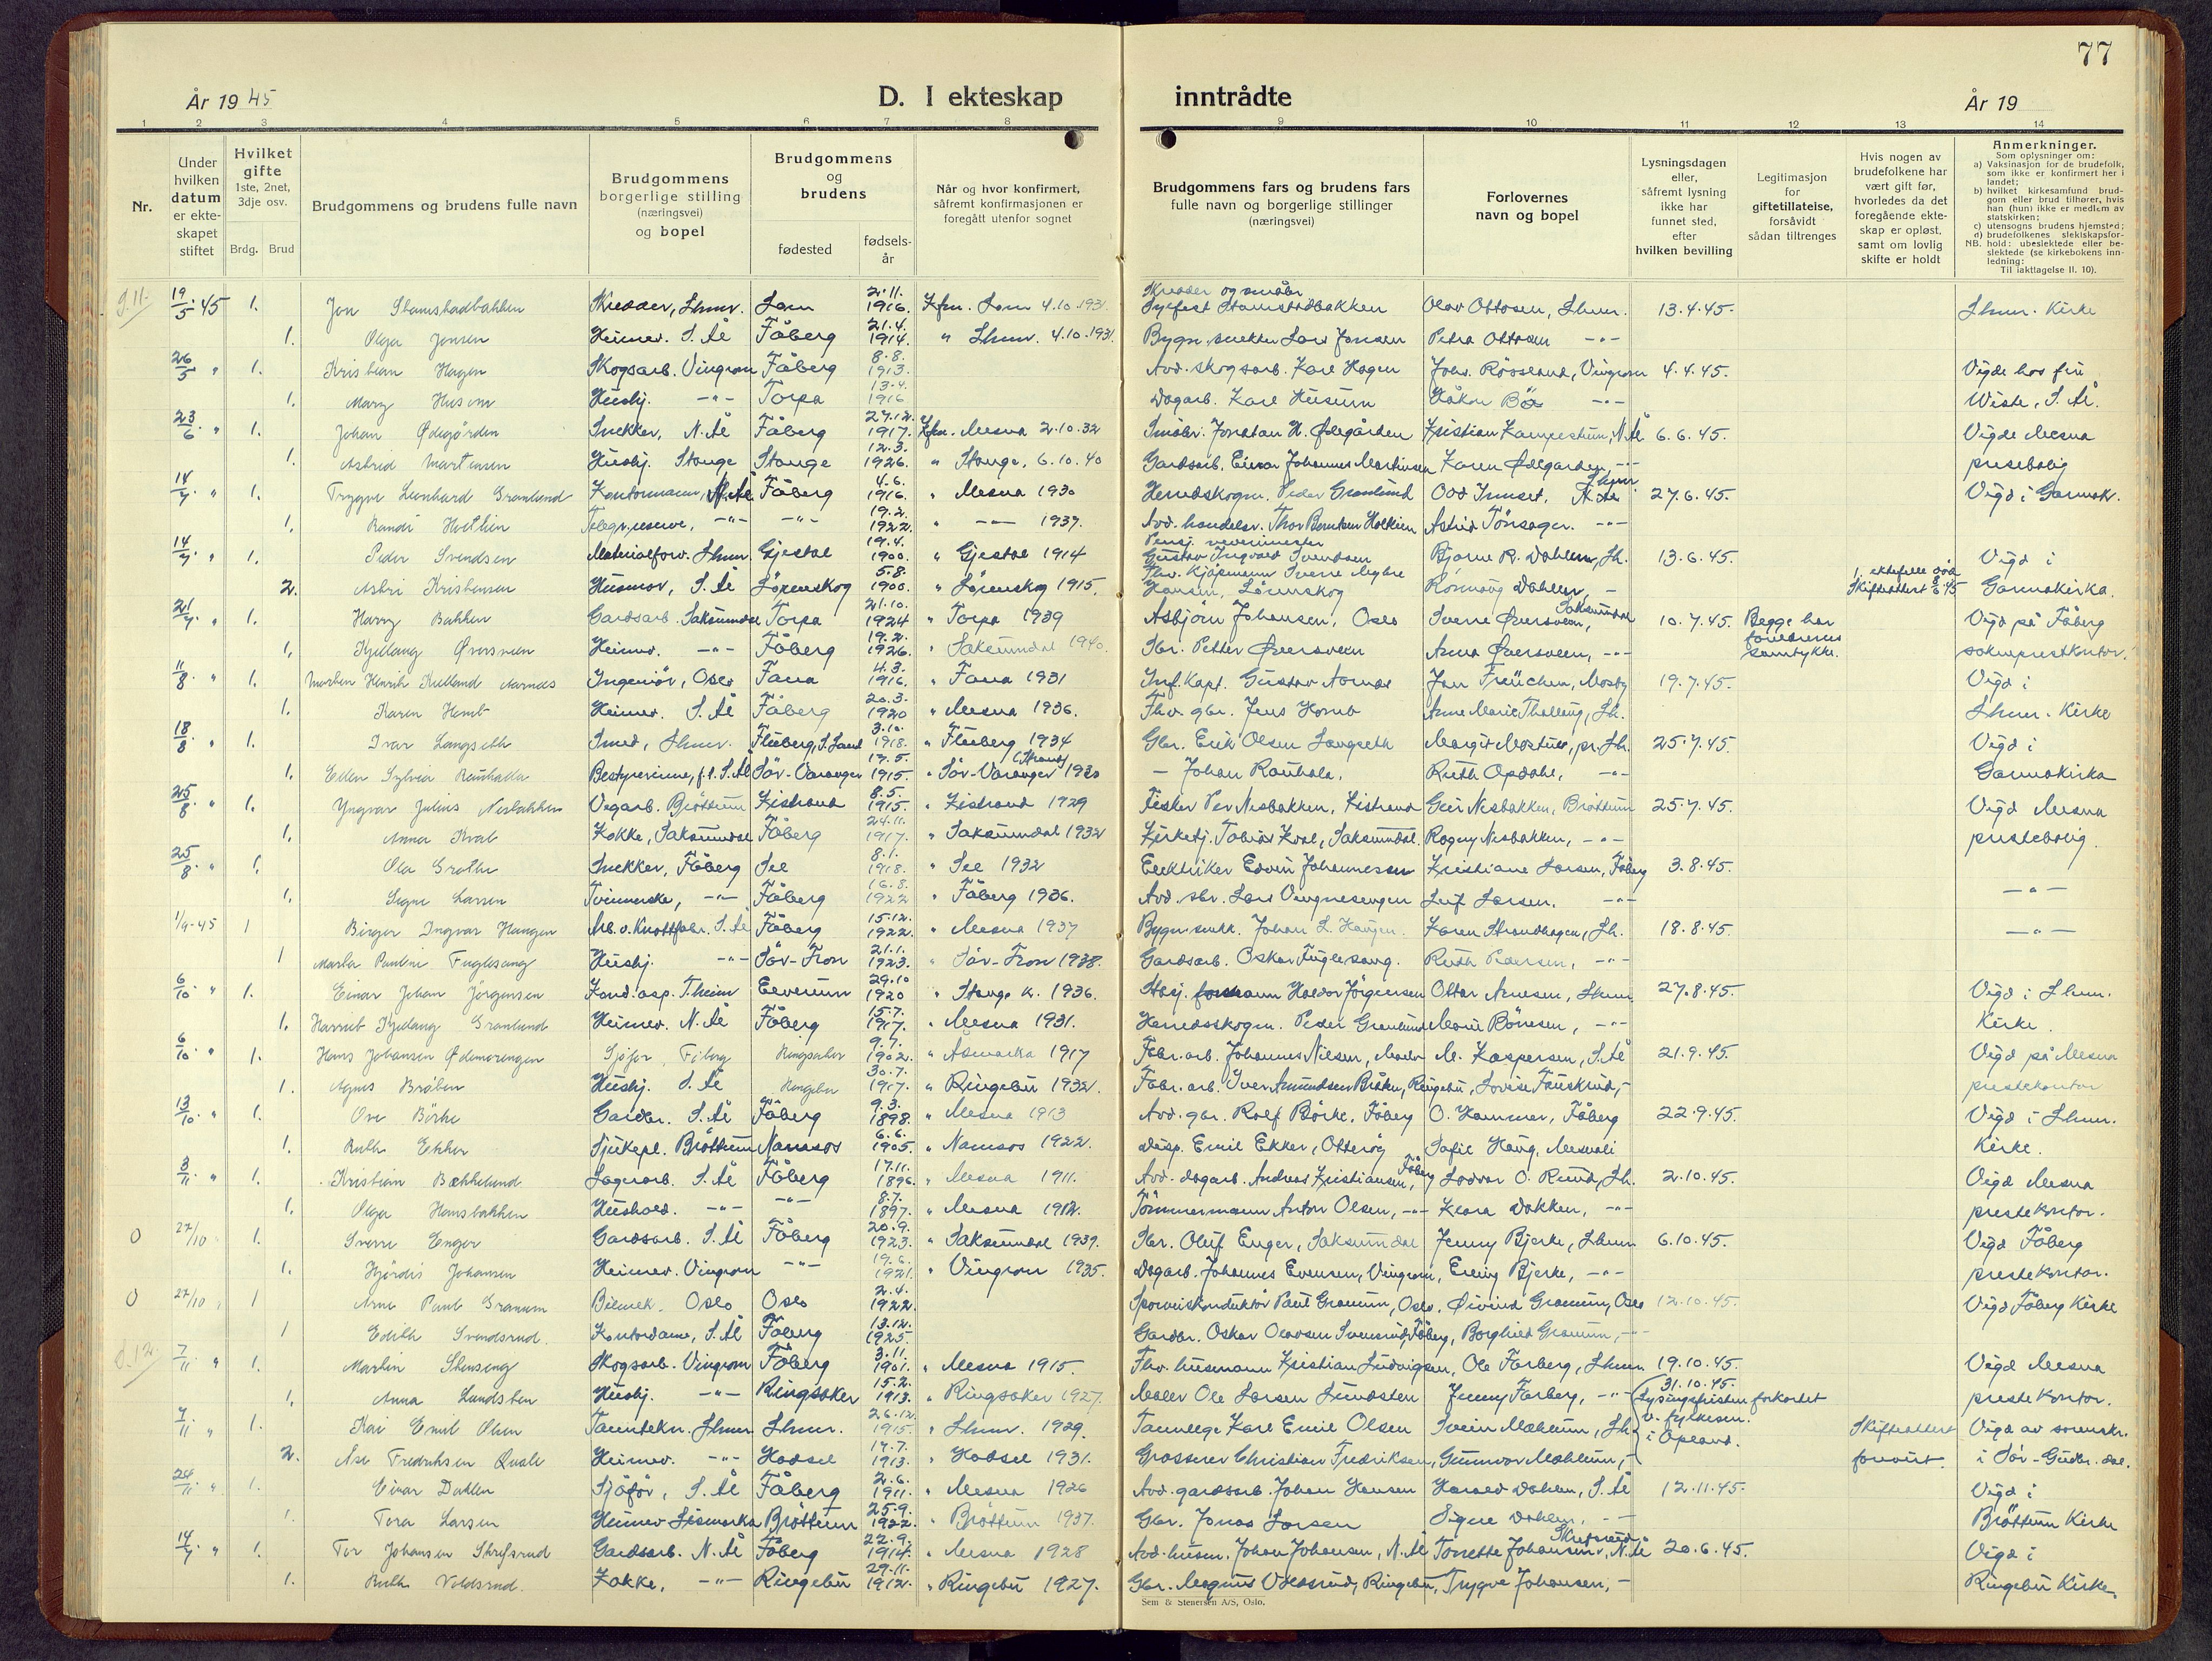 77
År 1945
D. I ekteskap inntrådte
År 19
1 2 3 4 5 6 7 8 9 10 11 12 13 14
Nr.
Under hvilken datum er ekteskapet stiftet
Hvilket gifte 1ste, 2net, 3dje osv.
Brdg. Brud
Brudgommens og brudens fulle navn
Brudgommens borgerlige stilling (næringsvei) og bopel
Brudgommens og brudens
fødested
fødsels-år
Når og hvor konfirmert, såfremt konfirmasjonen er foregått utenfor sognet
Brudgommens fars og brudens fars fulle navn og borgerlige stillinger (næringsvei)
Forlovernes navn og bopel
Lysningsdagen eller, såfremt lysning ikke har funnet sted, efter hvilken bevilling
Legitimasjon for giftetillatelse, forsåvidt sådan tiltrenges
Hvis nogen av brudefolkene har vært gift før, hvorledes da det foregående ekteskap er opløst, samt om lovlig skifte er holdt
Anmerkninger.
Som oplysninger om:
a) Vaksinasjon for de brudefolk, som ikke er konfirmert her i landet;
b) hvilket kirkesamfund brudgom eller brud tilhører, hvis han (hun) ikke er medlem av statskirken;
c) utensogns brudens hjemsted;
d) brudefolkenes slektskapsforhold: ubeslektede eller beslektede (se kirkebokens innledning:
NB. Til iakttagelse II. 10).
19/5 45 1. Jon Stamstadbakken Skredder, Lhmr. Lom 2.11. 1916. Kfm. Lom 4.10.1931 Skredder og småbr. Sylfest Stamstadbakken Olav Ottosen, Lhmr. 13.4.45. Lhmr. Kirke
1. Olga Jensen Heimev. S. Ål Fåberg 21.4. 1914. " Lhmr. 4.10.1931. Petra Ottosen -"-
26/5 " 1. Kristian Hagen Skogsarb. Vingrom Fåberg 8.8. 1913. Avd. skogsarb. Karl Hagen Johs. Røssland, Vingrom 4.4.45. Vigde hos fru
1. Mary Husum Hushj. -"- Torpa 13.4. 1916 Dagarb. Karl Husum Håkon Bø -"- Wiste, S. Ål.
23/6 " 1. Johan Ødegården Snekker, N. Ål Fåberg 27.12. 1917. Kfm. Mesna 2.10.32 Småbr. Jonatan H. Ødegården 6.6.45. Vigde Mesna
1. Astrid Martinsen Hushj. Stange Stange 12.3. 1926. " Stange, 6.10.40 Gardsarb. Einar Johannes Martinsen Karen Ødegården, -"- prestebolig
14/7 " 1. Trygve Leonhard Granlund Kontormann, N. Ål Fåberg 4.6. 1916. " Mesna 1930 Herredskogm. Peder Granlund Odd Imset, Lhmr. 27.6.45. Vigd i Garmok.
1. Randi Holthin -"- -"- 19.2. 1922. " -"- 1937. Astrid Tönsager. -"-
14/7 " 1. Peder Svendsen Materialforv. Lhmr. Gjestal 19.4. 1900. " Gjestal 1914 Gustav Ingvald Svendsen Bjarne R. Dahlen, Lh. 13.6.45. Vigd i
2. Astri Kristensen Husmor, S. Ål Lørenskog 5.8. 1900. " Lørenskog 1915. Fhv. kjøpmann Sverre Myhre Hansen, Lørenskog Rønnaug Dahlen, - 1. ektefelle død Skifteattest 45 Garmokirka.
21/7 " 1. Harry Bakken Gardsarb. Saksumdal Torpa 21.10. 1924 " Torpa 1939 Asbjörn Johansen, Oslo Sverre Øversveen, Saksumdal 10.7.45. Begge har foreldrenes samtykke. Vigd på Fåberg
1. Kjellaug Øversveen Heimev. -"- Fåberg 19.2. 1926. " Saksumdal 1940. Gbr. Petter Øversveen Anna Øversveen, -"- sokneprestkontor.
11/8 " 1. Morten Henrik Kielland Aarnæs Ingeniør, Oslo Fana 4.3. 1916. " Fana 1931 Inf. Kapt. Gustav Aarnæs Jan Freuchen, Mosby 19.7.45. Vigd i
1. Karen Homb Heimev. S. Ål Fåberg 20.3. 1920 " Mesna 1936. Fhv. gbr. Jens Homb Anne Marie Thallaug, Lh. Lhmr. Kirke
18/8 " 1. Ivar Langseth Smed, Lhmr. Fluberg, S. Land 3.10. 1918. " Fluberg 1934 Gbr. Erik Olsen Langseth 25.7.45. Vigd i
1. Ellen Sylvia Rauhala Bestyrerinne, f.t. S. Ål Sör-Varanger 17.5. 1915. " Sör-Varanger (Strand) 1930 - Johan Rauhala, Ruth Opdahl, -"- Garmokirka
25/8 " 1. Yngvar Julius Nesbakken Vegarb. Brøttum Kistrand 8.5. 1915. " Kistrand 1929 Fisker Per Nesbakken, Kistrand Geir Nesbakken, Brøttum 25.7.45. Vigd Mesna
1. Anna Kval Kokke, Saksumdal Fåberg 24.11. 1917. " Saksumdal 1932 Kirketj. Tobias Kval, Saksumdal. Ragny Nesbakken, -"- prestebolig
25/8 " 1. Ola Grøthe Snekker, Fåberg Sel 8.1. 1918. " Sel 1932 Elektriker Edvin Johannessen Kristiane Larsen, Fåberg 3.8.45.
1. Signe Larsen -"- Fåberg 16.8. 1922 " Fåberg 1936. Avd. sbr. Lars Vingnesengen Leif Larsen. -"- -"-
1/9-45 1 Birger Ingvar Haugen Arb. v. Knottfabr. S. Ål Fåberg 15.12. 1922. " Mesna 1937 Bygn. snekk. Johan L. Haugen. Karen Strandhagen, Lh. 18.8.45. -"-
1 Marta Pauline Fuglesang Hushj. -"- Sör-Fron 21.1. 1923. " Sör-Fron 1938. Gardsarb. Oskar Fuglesang. Ruth Pedersen, -"-
6/10 " 1. Einar Johan Jørgensen Kond. asp. T.heim Elverum 29.10 1920 " Stange k. 1936. Haldor Jörgensen Ottar Arnesen, Lhmr. 27.8.45. Vigd i Lhmr.
1. Harriet Kjellaug Granlund Heimev. N. Ål Fåberg 15.7. 1917. " Mesna 1931. Herredsskogm. Peder Granlund Marie Bönesen, -"- Kirke.
6/10 " 1. Hans Johansen Ødemorengen Sjåfør, Fåberg Ringsaker 9.7. 1902. " Åsmarka 1917 Fabr. arb. Johannes Nilsen, Moelv M. Kaspersen, S. Ål 21.9.45. Vigd på Mesna
1. Agnes Bråten Hushj. S. Ål Ringebu 30.7. 1917. " Ringebu 1932. Fabr. arb. Iver Amundsen Bråten, Ringebu, Lovise Fauskrud, - prestekontor
13/10 " 1. Ove Børke Gardbr. S. Ål Fåberg 9.3. 1898. " Mesna 1913 Avd. gbr. Rolf Børke, Fåberg O. Hammer, Fåberg 22.9.45. Vigd i Lhmr.
1. Ruth Ekker Sjukepl. Brøttum Namsos 6.6. 1905. " Namsos 1922. Disp. Emil Ekker, Otterøy Sofie Haug, Mesnali Kirke.
3/11 " 1. Kristian Bækkelund Lagerarb. S. Ål Fåberg 17.11. 1896. " Mesna 1911. Avd. dagarb. Andreas Kristiansen, Fåberg Lodvar O. Rund, Lh. 2.10.45. Vigd Mesna
1. Olga Hansbakken Hushold. -"- -"- 8.7. 1897. " Mesna 1912. Tömmermann Anton Olsen, -"- Klara Dokken, -"- prestekontor.
O 27/10 " 1. Sverre Enger Gardsarb. S. Ål Fåberg 20.9. 1923. " Saksumdal 1939. Sbr. Oluf Enger, Saksumdal Jenny Bjerke, Lhmr. 6.10.45. Vigd Fåberg
1. Hjördis Johansen Heimev. Vingrom -"- 19.6. 1921. " Vingrom 1935. Dagarb. Johannes Evensen, Vingrom, Erling Bjerke, -"- prestekontor.
O 27/10 " 1 Arne Paul Granum Bilmek. Oslo Oslo 2.4. 1922. Sporveiskonduktør Paul Granum, Oslo. Øivind Granum, Oslo 12.10.45. Vigd Fåberg Kirke
1 Edith Svendsrud. Kontordame, S. Ål Fåberg 13.12. 1925. Gardbr. Oskar Olavsen Svensrud, Fåberg, Borghild Granum, -"-
7/11 " 1. Martin Stenseng Skogsarb. Vingrom Fåberg 3.11. 1901. " Mesna 1915. Fhv. husmann Kristian Ludvigsen, Ole Farberg, Lhmr. 19.10.45. Vigd Mesna
1. Anna Lundsten Hushj. -"- Ringsaker 15.2. 1913. " Ringsaker 1927. Maler Ole Larsen Lundsten Jenny Farberg, -"- 31.10.45. Lysingsfristen forkortet v. fylkesm. i Opland. prestekontor.
7/11 " 1. Kai Emil Olsen Tanntekn. Lhmr Lhmr. 26.12. 1915. " Lhmr. 1929. Tannlege Karl Emil Olsen Svein Mæhlum, Lh. Skifteattest Vigd av sorenskr.
2. Åse Fredriksen Qvale Heimev. -"- Hadsel 17.7. 1913. " Hadsel 1931. Grosserer Christian Fredriksen, Gunnvor Mæhlum, - forevist. i Sör-Gudbr. dal.
24/11 " 1. Einar Dahlen Sjåför, S. Ål Fåberg 2.6. 1911. " Mesna 1926 Avd. gardsarb. Johan Hansen Harald Dahlen, S. Ål 12.11.45. Vigd i
1. Tora Larsen Heimev Lismarka Brøttum 25.9. 1922. " Brøttum 1937. Gbr. Jonas Larsen Signe Dahlen, -"- Brøttum Kirke
14/7 " 1. Tor Johansen Skrefsrud Gardsarb. N. Ål Fåberg 22.9. 1914. " Mesna 1928 Avd. husm. Johan Johansen, N. Ål Torette Johansen Skrefsrud, N. Ål 20.6.45. Vigd i
1. Ruth Voldsrud. Kokke, -"- Ringebu 29.11. 1912. " Ringebu 1927. Gbr. Magnus Voldsrud, Ringebu, Trygve Johansen, - Ringebu Kirke.
Sem & Stenersen A/S, Oslo.